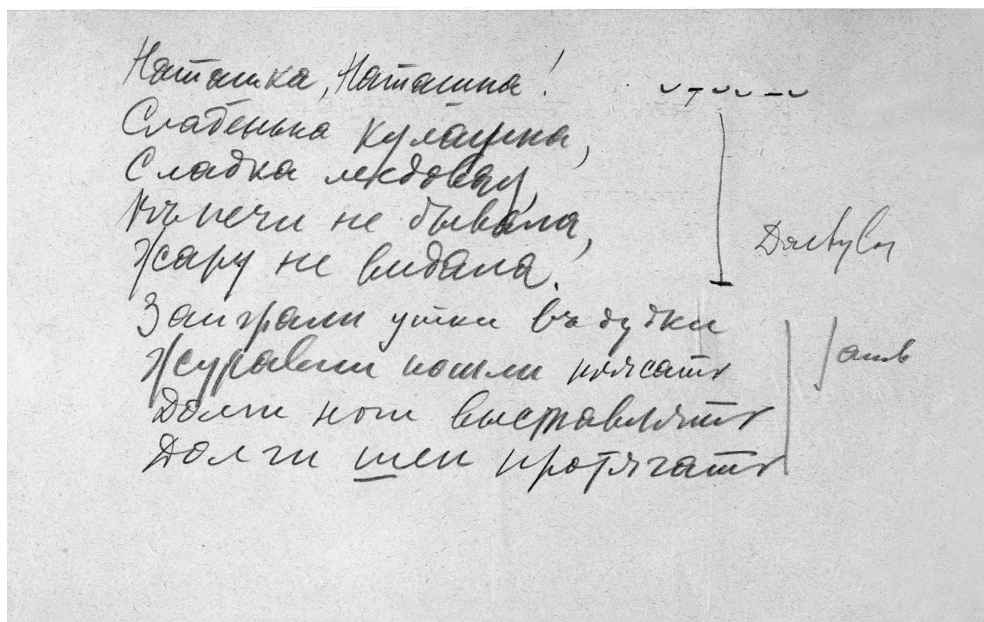 Наташка, Наташка!
Сладенька кулажка,
Сладка медовая,
Въ печи не бывала,
Жару не видала.
Заиграли утки въ дудки
Журавли пошли плясать
Долги ноги выставлять
Долги шеи протягать
Dactylus
Jamb